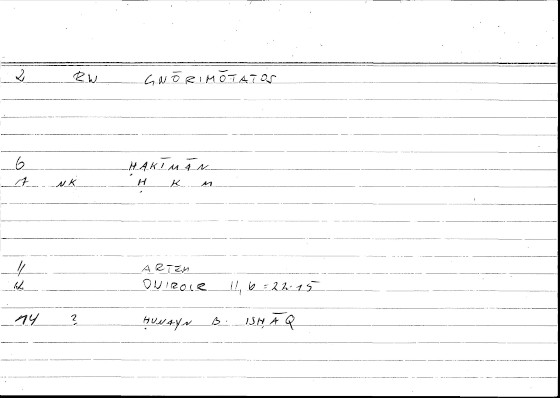 2 RW GNŌRIMŌTATOS
6 ḤAKĪMĀN
7 NK Ḥ K M
11 ARTEM
12 ONIROCR II, 6 = 22.15
14 ? ḤUNAYN B. ISḤĀQ